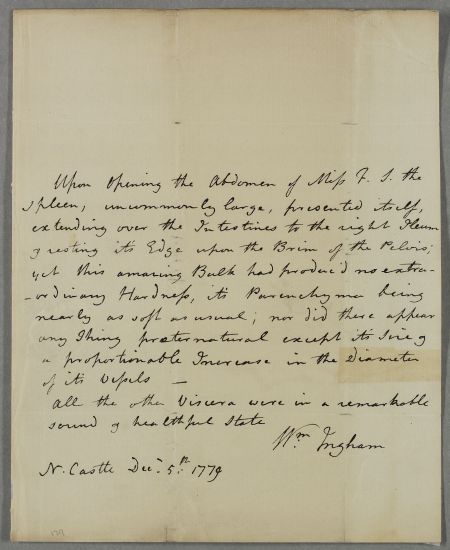 Upon Opening the Abdomen of Miſs F. S. the
Spleen, uncommonly large, presented itself,
extending over the Intestines to the right Ileum
& resting its Edge upon the Brim of the Pelvis;
yet this amazing Bulk had produc'd no extra-
-ordinary Hardneſs, its Parenchyma being
nearly as soft as usual; nor did there appear
any Thing præternatural except its Size &
a proportionable Increase in the Diameter
of its Veſsels —
All the other Viscera were in a remarkable
sound & healthful State
Wm Ingham
N. Castle Decr. 5th. 1779